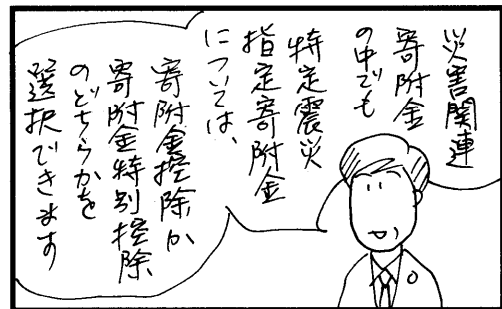 災害関連
寄附金
の中でも
特定震災
指定寄附金
については、
寄附金控除か
寄附金特別控除
のどちらかを
選択できます